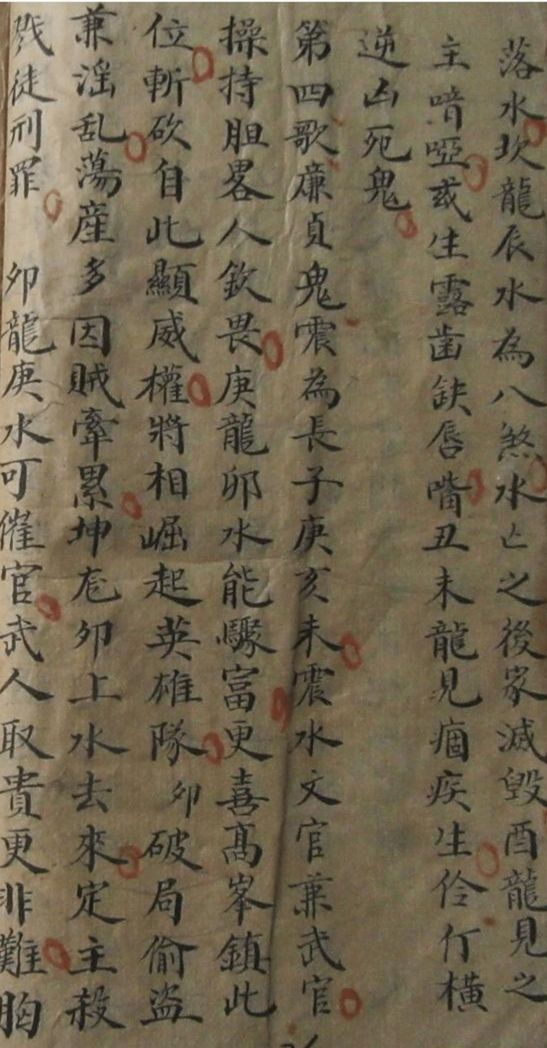 落水坎龍辰水為八煞水亡之後家滅毀酉龍見之
主喑啞或生露齒缺唇嘴丑未龍見痼疾生伶仃橫
逆凶死鬼
第四歌廉貞鬼震為長子庚亥未震水文官兼武官
操持胆畧人欽畏庚龍卯水能驟富更喜高峯鎮此
位斬砍自此顯威權將相崛起英雄隊 卯破局偷盜
兼淫乱蕩産多因賊牽累坤庀卯上水去來定主殺
戮徒刑罪 卯龍庚水可催官武人取貴更非難胸